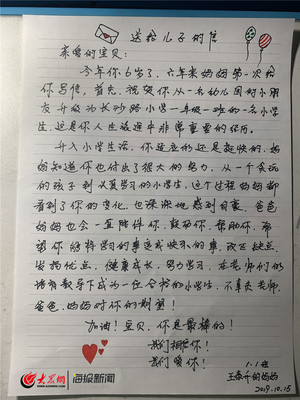 送给儿子的信
亲爱的宝贝:
今年你6岁了,六年来妈妈第一次给
你写信,首先,祝贺你从一名幼儿园的小朋
友升级为长沙路小学一年级一班的一名小学
生,这是你人生旅途中非常重要的经历。
升入小学生活,你适应的还是挺快的,妈妈
知道你也付出了很大的努力,从一个贪玩
的孩子到认真学习的小学生,这个过程妈妈都
看到了你的变化,也深深地感到自豪,爸爸
妈妈也会一直陪伴你,鼓励你,帮助你,希
望你能将学习的事变成快乐的事,改正缺点,
发扬优点,健康成长,努力学习,在老师们的
谆谆教导下成为一位合格的小学生,不辜负老师、
爸爸、妈妈对你的期望!
加油!宝贝,你是最棒的!
我们拥抱你!
我们爱你!
1.1班
的妈妈
2019.10.15
大众网 海报新闻